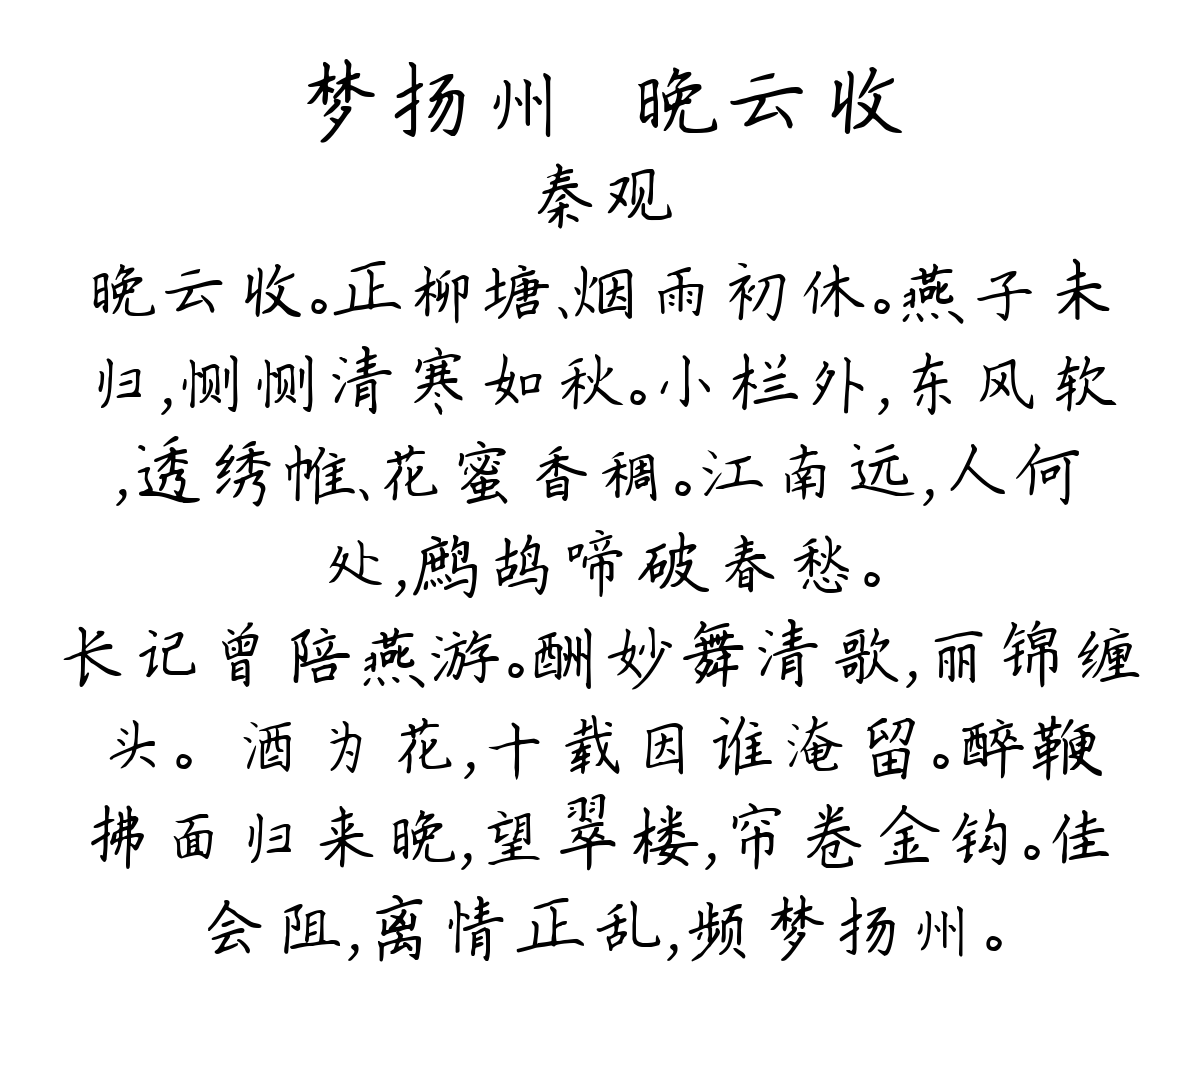 梦扬州 晚云收
秦观
晚云收。正柳塘、烟雨初休。燕子未
归,恻恻清寒如秋。小栏外,东风软
,透绣帷、花蜜香稠。江南远,人何
处,鹧鸪啼破春愁。
长记曾陪燕游。酬妙舞清歌,丽锦缠
头。酒为花,十载因谁淹留。醉鞭
拂面归来晚,望翠楼,帘卷金钩。佳
会阻,离情正乱,频梦扬州。